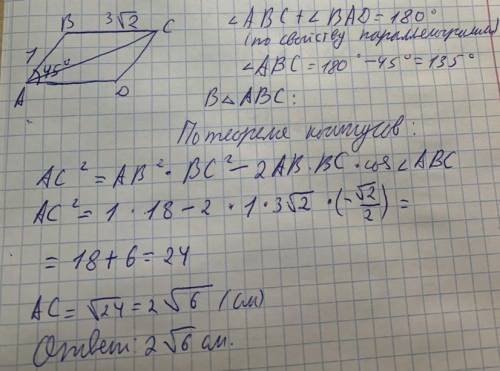 B 3√2 C
1
45°
A D
∠ABC + ∠BAD = 180°
(по свойству параллелограмма)
∠ABC = 180° - 45° = 135°
В △ ABC:
По теореме косинусов:
AC² = AB² · BC² - 2AB · BC · cos ∠ABC
AC² = 1 · 18 - 2 · 1 · 3√2 · (-√2/2) =
= 18 + 6 = 24
AC = √24 = 2√6 (см)
Ответ: 2√6 см.